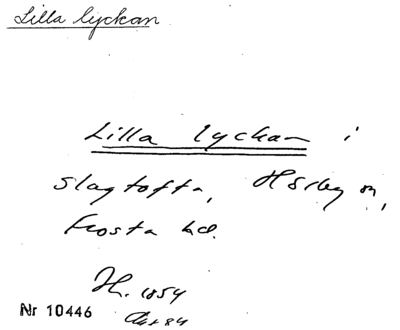 Lilla lyckan
Lilla lyckan i
Slagtofta, Hörby sn,
Frosta hd.
JH. 1854
Nr 10446